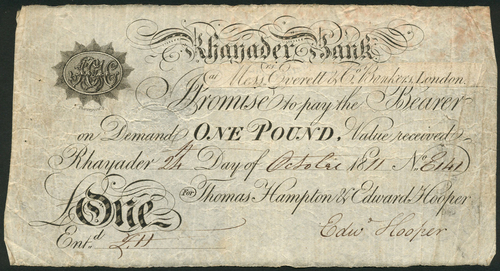 Rhayader Bank
or
at Mess. Everett & Co. Bankers, London.
I Promise to pay the Bearer
on Demand ONE POUND, Value received
Rhayader 24 Day of October 1811 No. E141
For Thomas Hampton & Edward Hooper
£One
Ent.d Edw. Hooper